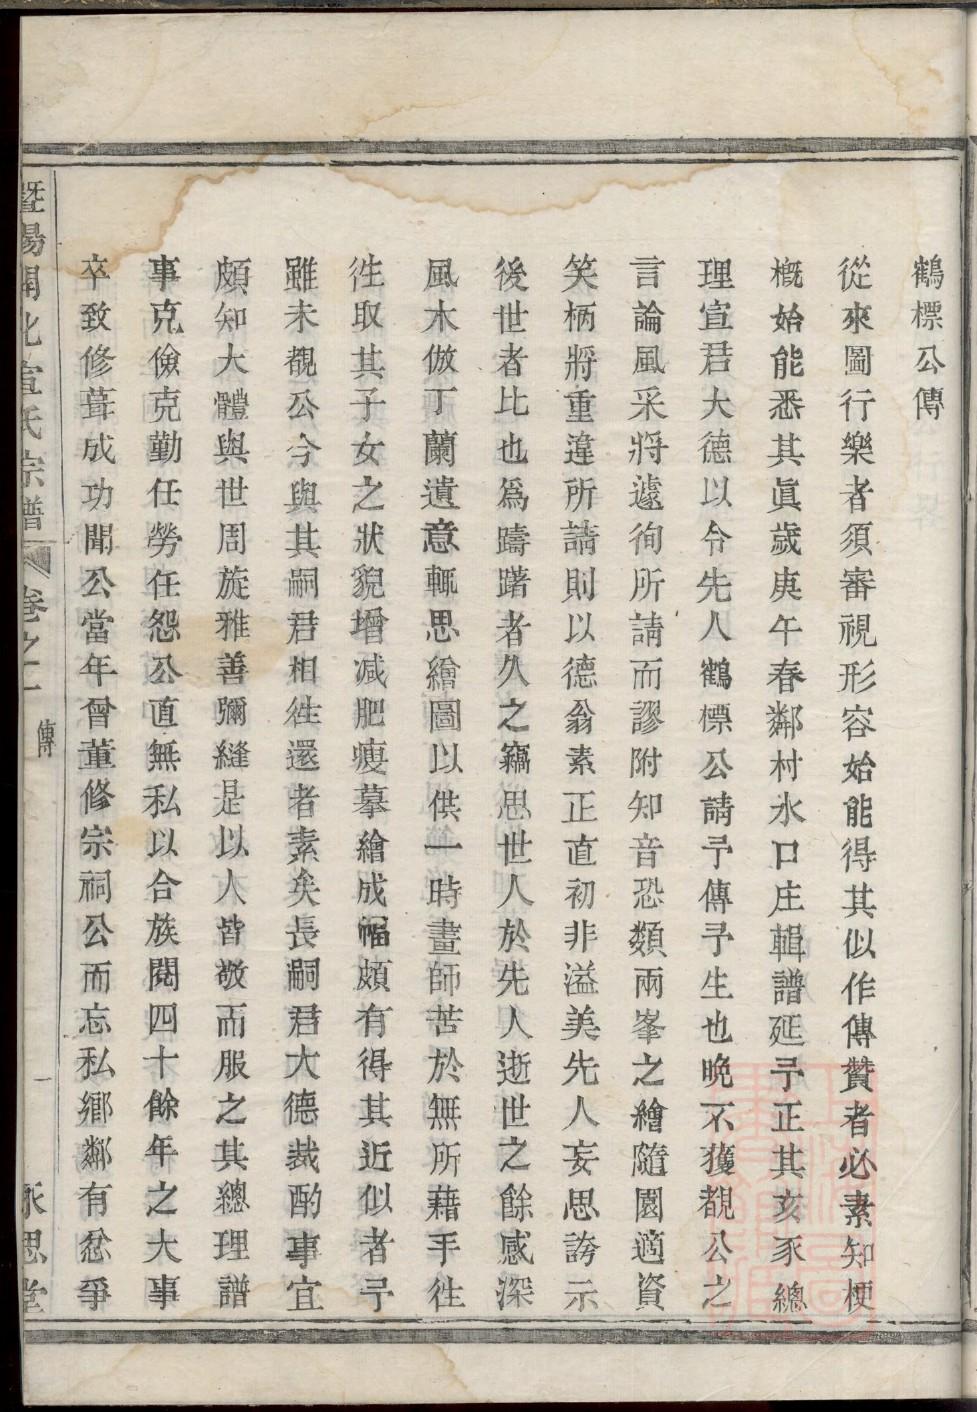 鶴標公傳
從來圖行樂者須審視形容始能得其似作傳贊者必素知梗
概始能悉其眞歲庚午春鄰村水口庄輯譜延予正其亥豕總
理宣君大德以令先人鶴標公請予傳予生也晚不獲覩公之
言論風采將遽徇所請而謬附知音恐類兩峯之繪隨園適資
笑柄將重違所請則以德翁素正直初非溢美先人妄思誇示
後世者比也爲躊躇者久之竊思世人於先人逝世之餘感深
風木倣丁蘭遺意輒思繪圖以供一時畫師苦於無所藉手徃
徃取其子女之狀貌增減肥瘦摹繪成幅頗有得其近似者予
雖未覩公今與其嗣君相徃還者素矣長嗣君大德裁酌事宜
頗知大體與世周旋雅善彌縫是以人皆敬而服之其總理譜
事克儉克勤任勞任怨公直無私以合族閱四十餘年之大事
卒致修葺成功聞公當年曾董修宗祠公而忘私鄉鄰有忿爭
暨陽開化宣氏宗譜
卷之一
傳
一
永思堂